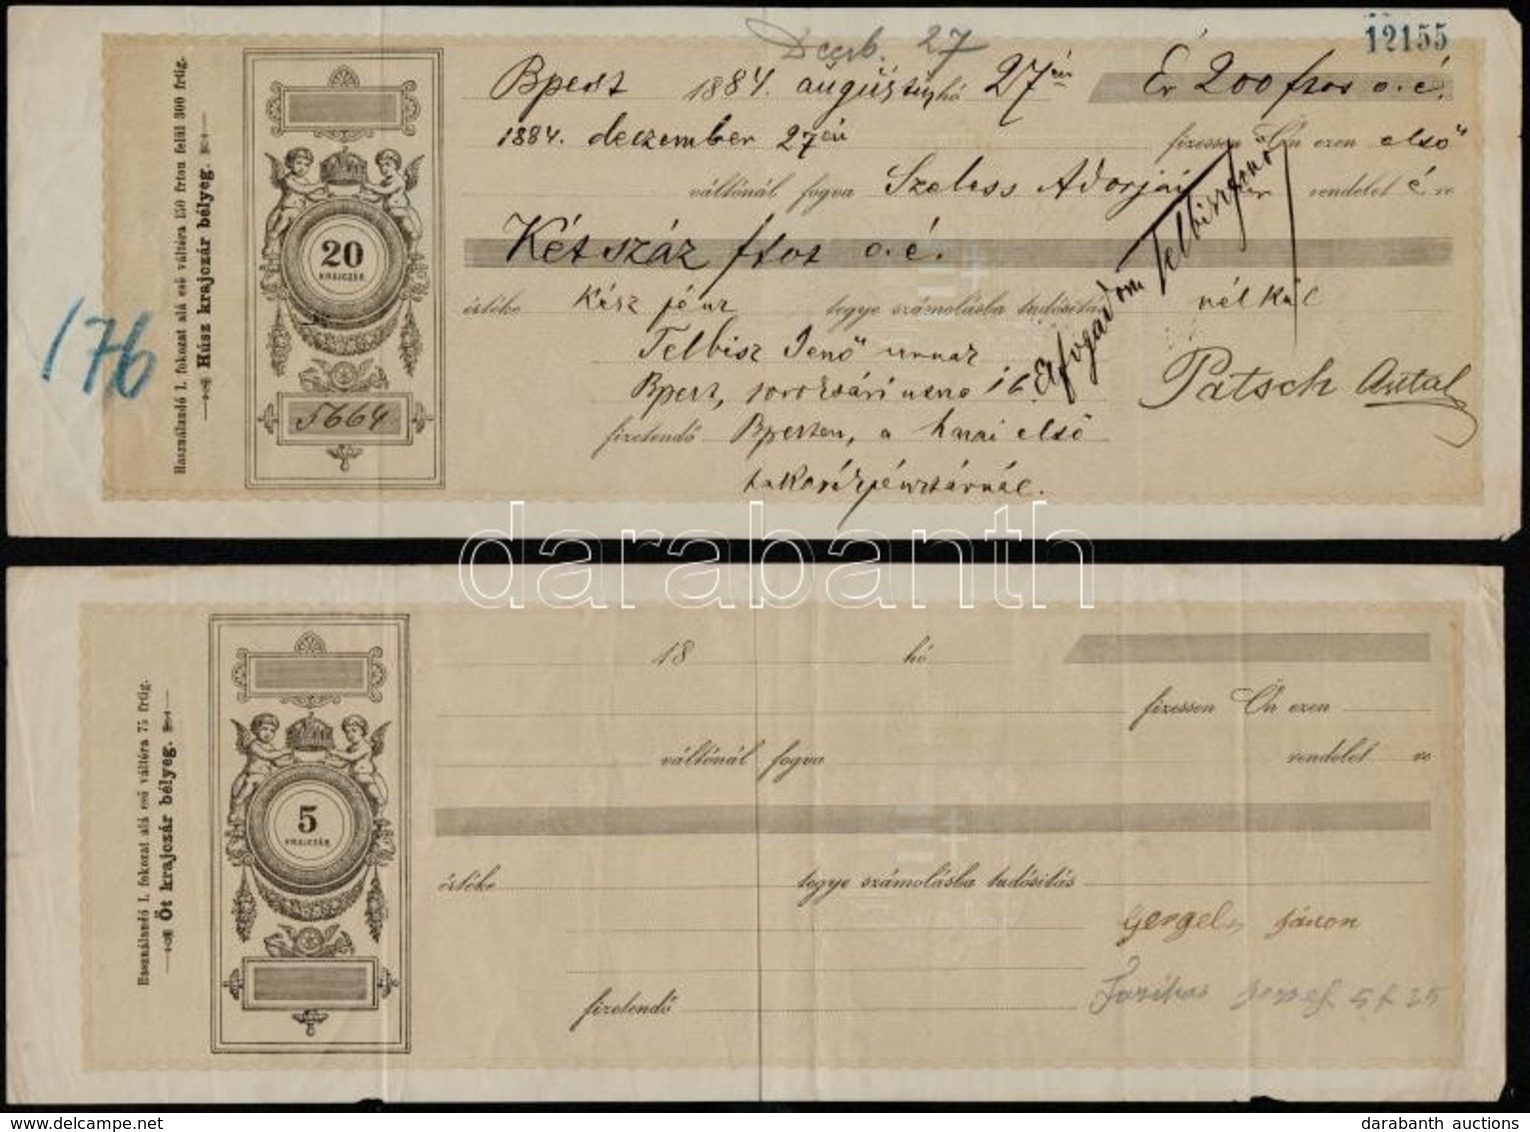 Decb. 27
12155
Bpest 1884. augusztus hó 27én Ér 200 frtos o.é.
1884. deczember 27én fizessen Ön ezen első
váltónál fogva Szeless Adorján rendeleté re
Kétszáz frtot o.é.
értéke kész pénz tegye számolásba tudósítás nélkül
Telbisz Jenő urnak
Bpest, soroksári utcza 16.
fizetendő Bpesten, a hazai első
takarékpénztárnál.
Elfogadom Telbisz Jenő
Patsch Antal
Használandó I. fokozat alá eső váltóra 150 frton felül 300 frtig.
Húsz krajczár bélyeg.
20
KRAJCZÁR
5664
176
darabanth
18 hó
fizessen Ön ezen
váltónál fogva rendelet re
értéke tegye számolásba tudósítás
Gergely János
József 5 f 25
fizetendő
Használandó I. fokozat alá eső váltóra 75 frtig.
Öt krajczár bélyeg.
5
KRAJCZÁR
darabanth auctions